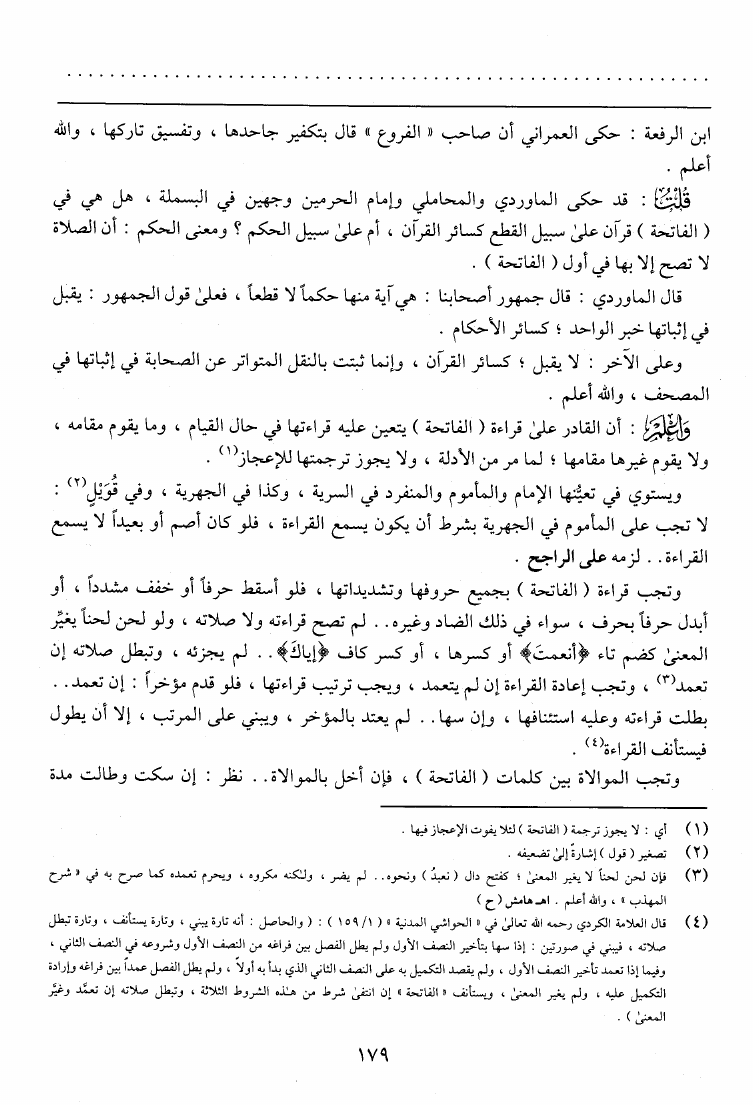 ابن الرفعة : حكى العمراني أن صاحب « الفروع » قال بتكفير جاحدها ، وتفسيق تاركها ، والله
أعلم .
قُلْتُ : قد حكى الماوردي والمحاملي وإمام الحرمين وجهين في البسملة ، هل هي في
( الفاتحة ) قرآن علىٰ سبيل القطع كسائر القرآن ، أم علىٰ سبيل الحكم ؟ ومعنى الحكم : أن الصلاة
لا تصح إلا بها في أول ( الفاتحة ) .
قال الماوردي : قال جمهور أصحابنا : هي آية منها حكماً لا قطعاً ، فعلىٰ قول الجمهور : يقبل
في إثباتها خبر الواحد ؛ كسائر الأحكام .
وعلى الآخر : لا يقبل ؛ كسائر القرآن ، وإنما ثبتت بالنقل المتواتر عن الصحابة في إثباتها في
المصحف ، والله أعلم .
وَاعْلَمْ : أن القادر علىٰ قراءة ( الفاتحة ) يتعين عليه قراءتها في حال القيام ، وما يقوم مقامه ،
ولا يقوم غيرها مقامها ؛ لما مر من الأدلة ، ولا يجوز ترجمتها للإعجاز(١) .
ويستوي في تعيُّنها الإمام والمأموم والمنفرد في السرية ، وكذا في الجهرية ، وفي قُوَيْلٍ(٢) :
لا تجب على المأموم في الجهرية بشرط أن يكون يسمع القراءة ، فلو كان أصم أو بعيداً لا يسمع
القراءة.. لزمه على الراجح .
وتجب قراءة ( الفاتحة ) بجميع حروفها وتشديداتها ، فلو أسقط حرفاً أو خفف مشدداً ، أو
أبدل حرفاً بحرف ، سواء في ذلك الضاد وغيره.. لم تصح قراءته ولا صلاته ، ولو لحن لحناً يغيِّر
المعنىٰ كضم تاء ﴿أنعمتَ﴾ أو كسرها ، أو كسر كاف ﴿إياكَ﴾.. لم يجزئه ، وتبطل صلاته إن
تعمد(٣) ، وتجب إعادة القراءة إن لم يتعمد ، ويجب ترتيب قراءتها ، فلو قدم مؤخراً : إن تعمد..
بطلت قراءته وعليه استئنافها ، وإن سها.. لم يعتد بالمؤخر ، ويبني على المرتب ، إلا أن يطول
فيستأنف القراءة(٤) .
وتجب الموالاة بين كلمات ( الفاتحة ) ، فإن أخل بالموالاة.. نظر : إن سكت وطالت مدة
(١) أي : لا يجوز ترجمة ( الفاتحة ) لئلا يفوت الإعجاز فيها .
(٢) تصغير ( قول ) إشارةً إلىٰ تضعيفه .
(٣) فإن لحن لحناً لا يغير المعنىٰ ؛ كفتح دال ( نعبدُ ) ونحوه.. لم يضر ، ولٰكنه مكروه ، ويحرم تعمده كما صرح به في « شرح
المهذب » ، والله أعلم . اهـ هامش ( ح )
(٤) قال العلامة الكردي رحمه الله تعالىٰ في « الحواشي المدنية » ( ١/ ١٥٩ ) : ( والحاصل : أنه تارة يبني ، وتارة يستأنف ، وتارة تبطل
صلاته ، فيبني في صورتين : إذا سها بتأخير النصف الأول ولم يطل الفصل بين فراغه من النصف الأول وشروعه في النصف الثاني ،
وفيما إذا تعمد تأخير النصف الأول ، ولم يقصد التكميل به على النصف الثاني الذي بدأ به أولاً ، ولم يطل الفصل عمداً بين فراغه وإرادة
التكميل عليه ، ولم يغير المعنىٰ ، ويستأنف « الفاتحة » إن انتفىٰ شرط من هٰذه الشروط الثلاثة ، وتبطل صلاته إن تعمَّد وغيَّر
المعنىٰ ) .
١٧٩